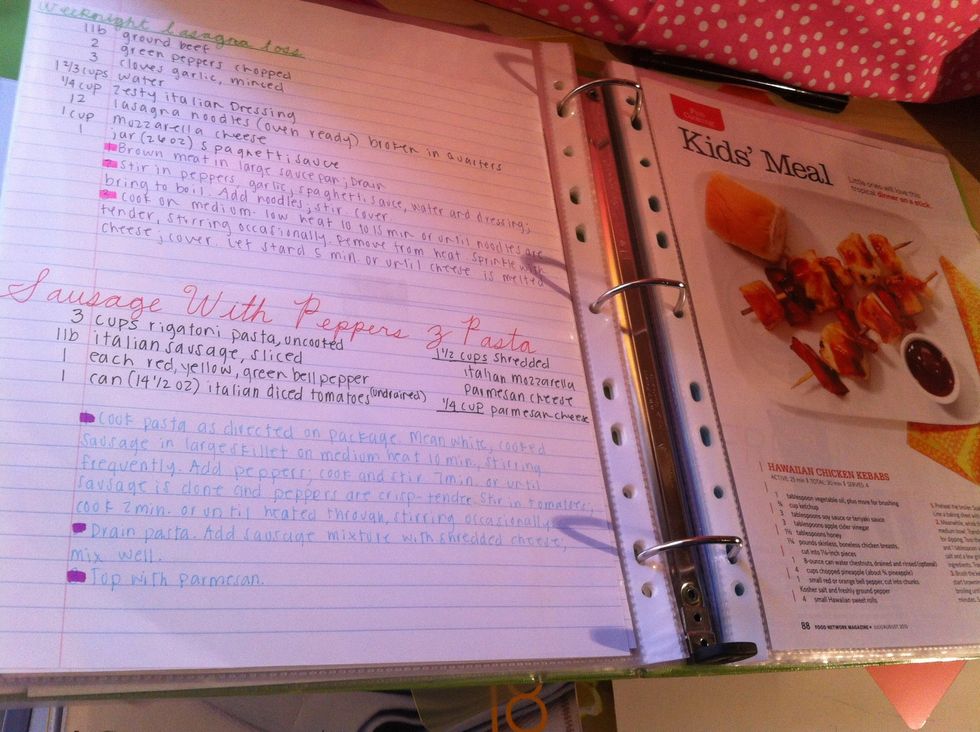 Weeknight Lasagna Toss
1lb ground beef
2 green peppers chopped
3 cloves garlic, minced
1 2/3 cups water
1/4 cup Zesty italian Dressing
12 lasagna noodles (oven ready) broken in quarters
1 cup mozzarella cheese
1 jar (26oz) spaghetti sauce
Brown meat in large sauce pan; Drain
Stir in peppers, garlic, spaghetti sauce, water and dressing;
bring to boil. Add noodles; stir. cover.
Cook on medium-low heat 10 to 15 min or until noodles are
tender, stirring occasionally. Remove from heat. Sprinkle with
cheese; cover. Let stand 5 min. or until cheese is melted
Sausage With Peppers & Pasta
3 cups rigatoni pasta, uncooted
1lb italian sausage, sliced
1 each red, yellow, green bell pepper
1 can (14 1/2 oz) italian diced tomatoes (undrained)
1 1/2 cups shredded
italian mozzarella
parmesan cheese
1/4 cup parmesan cheese
Cook pasta as directed on package. Mean white, cooked
sausage in large skillet on medium heat 10 min., stirring
frequently. Add peppers; cook and stir 7min. or until
sausage is done and peppers are crisp-tender. Stir in tomatoes;
cook 2min. or until heated through, stirring occasionally
Drain pasta. Add sausage mixture with shredded cheese;
mix well.
Top with parmesan.
Kids' Meal
Little ones will love this
tropical dinner on a stick.
HAWAIIAN CHICKEN KEBABS
ACTIVE: 25 min TOTAL: 30 min SERVES: 4
1 tablespoon vegetable oil, plus more for brushing
cup ketchup
3 tablespoons soy sauce or teriyaki sauce
tablespoons apple cider vinegar
tablespoons honey
pounds skinless, boneless chicken breasts,
cut into 1½-inch pieces
8-ounce can water chestnuts, drained and rinsed (optional)
4 cups chopped pineapple (about ¾ pineapple)
1 small red or orange bell pepper, cut into chunks
Kosher salt and freshly ground pepper
4 small Hawaiian sweet rolls
88 FOOD NETWORK MAGAZINE
18